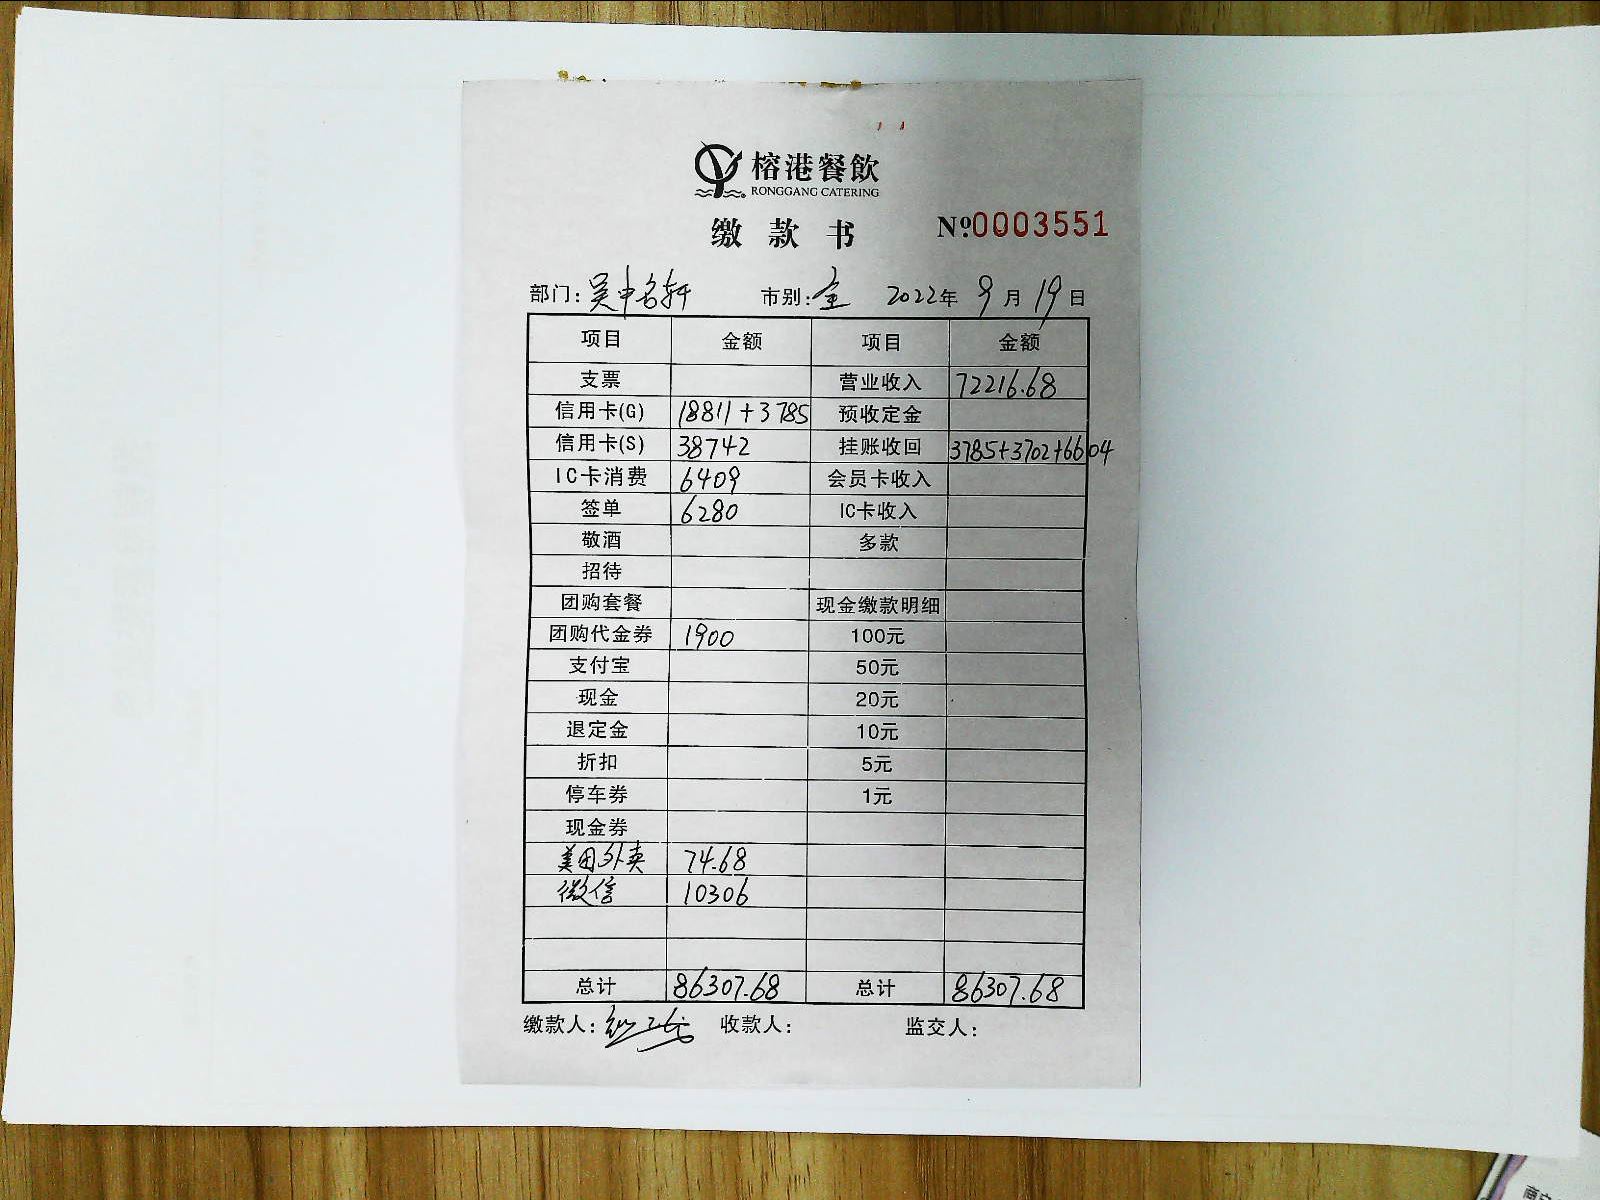 榕港餐飲
RONGGANG CATERING
缴款书 №0003551
部门：吴中名轩 市别：全 2022年9月19日
项目 金额 项目 金额
支票 营业收入 72216.68
信用卡(G) 18811+3785 预收定金
信用卡(S) 38742 挂账收回 3785+3702+6604
IC卡消费 6409 会员卡收入
签单 6280 IC卡收入
敬酒 多款
招待
团购套餐 现金缴款明细
团购代金券 1900 100元
支付宝 50元
现金 20元
退定金 10元
折扣 5元
停车券 1元
现金券
美团外卖 74.68
微信 10306
总计 86307.68 总计 86307.68
缴款人： 收款人： 监交人：